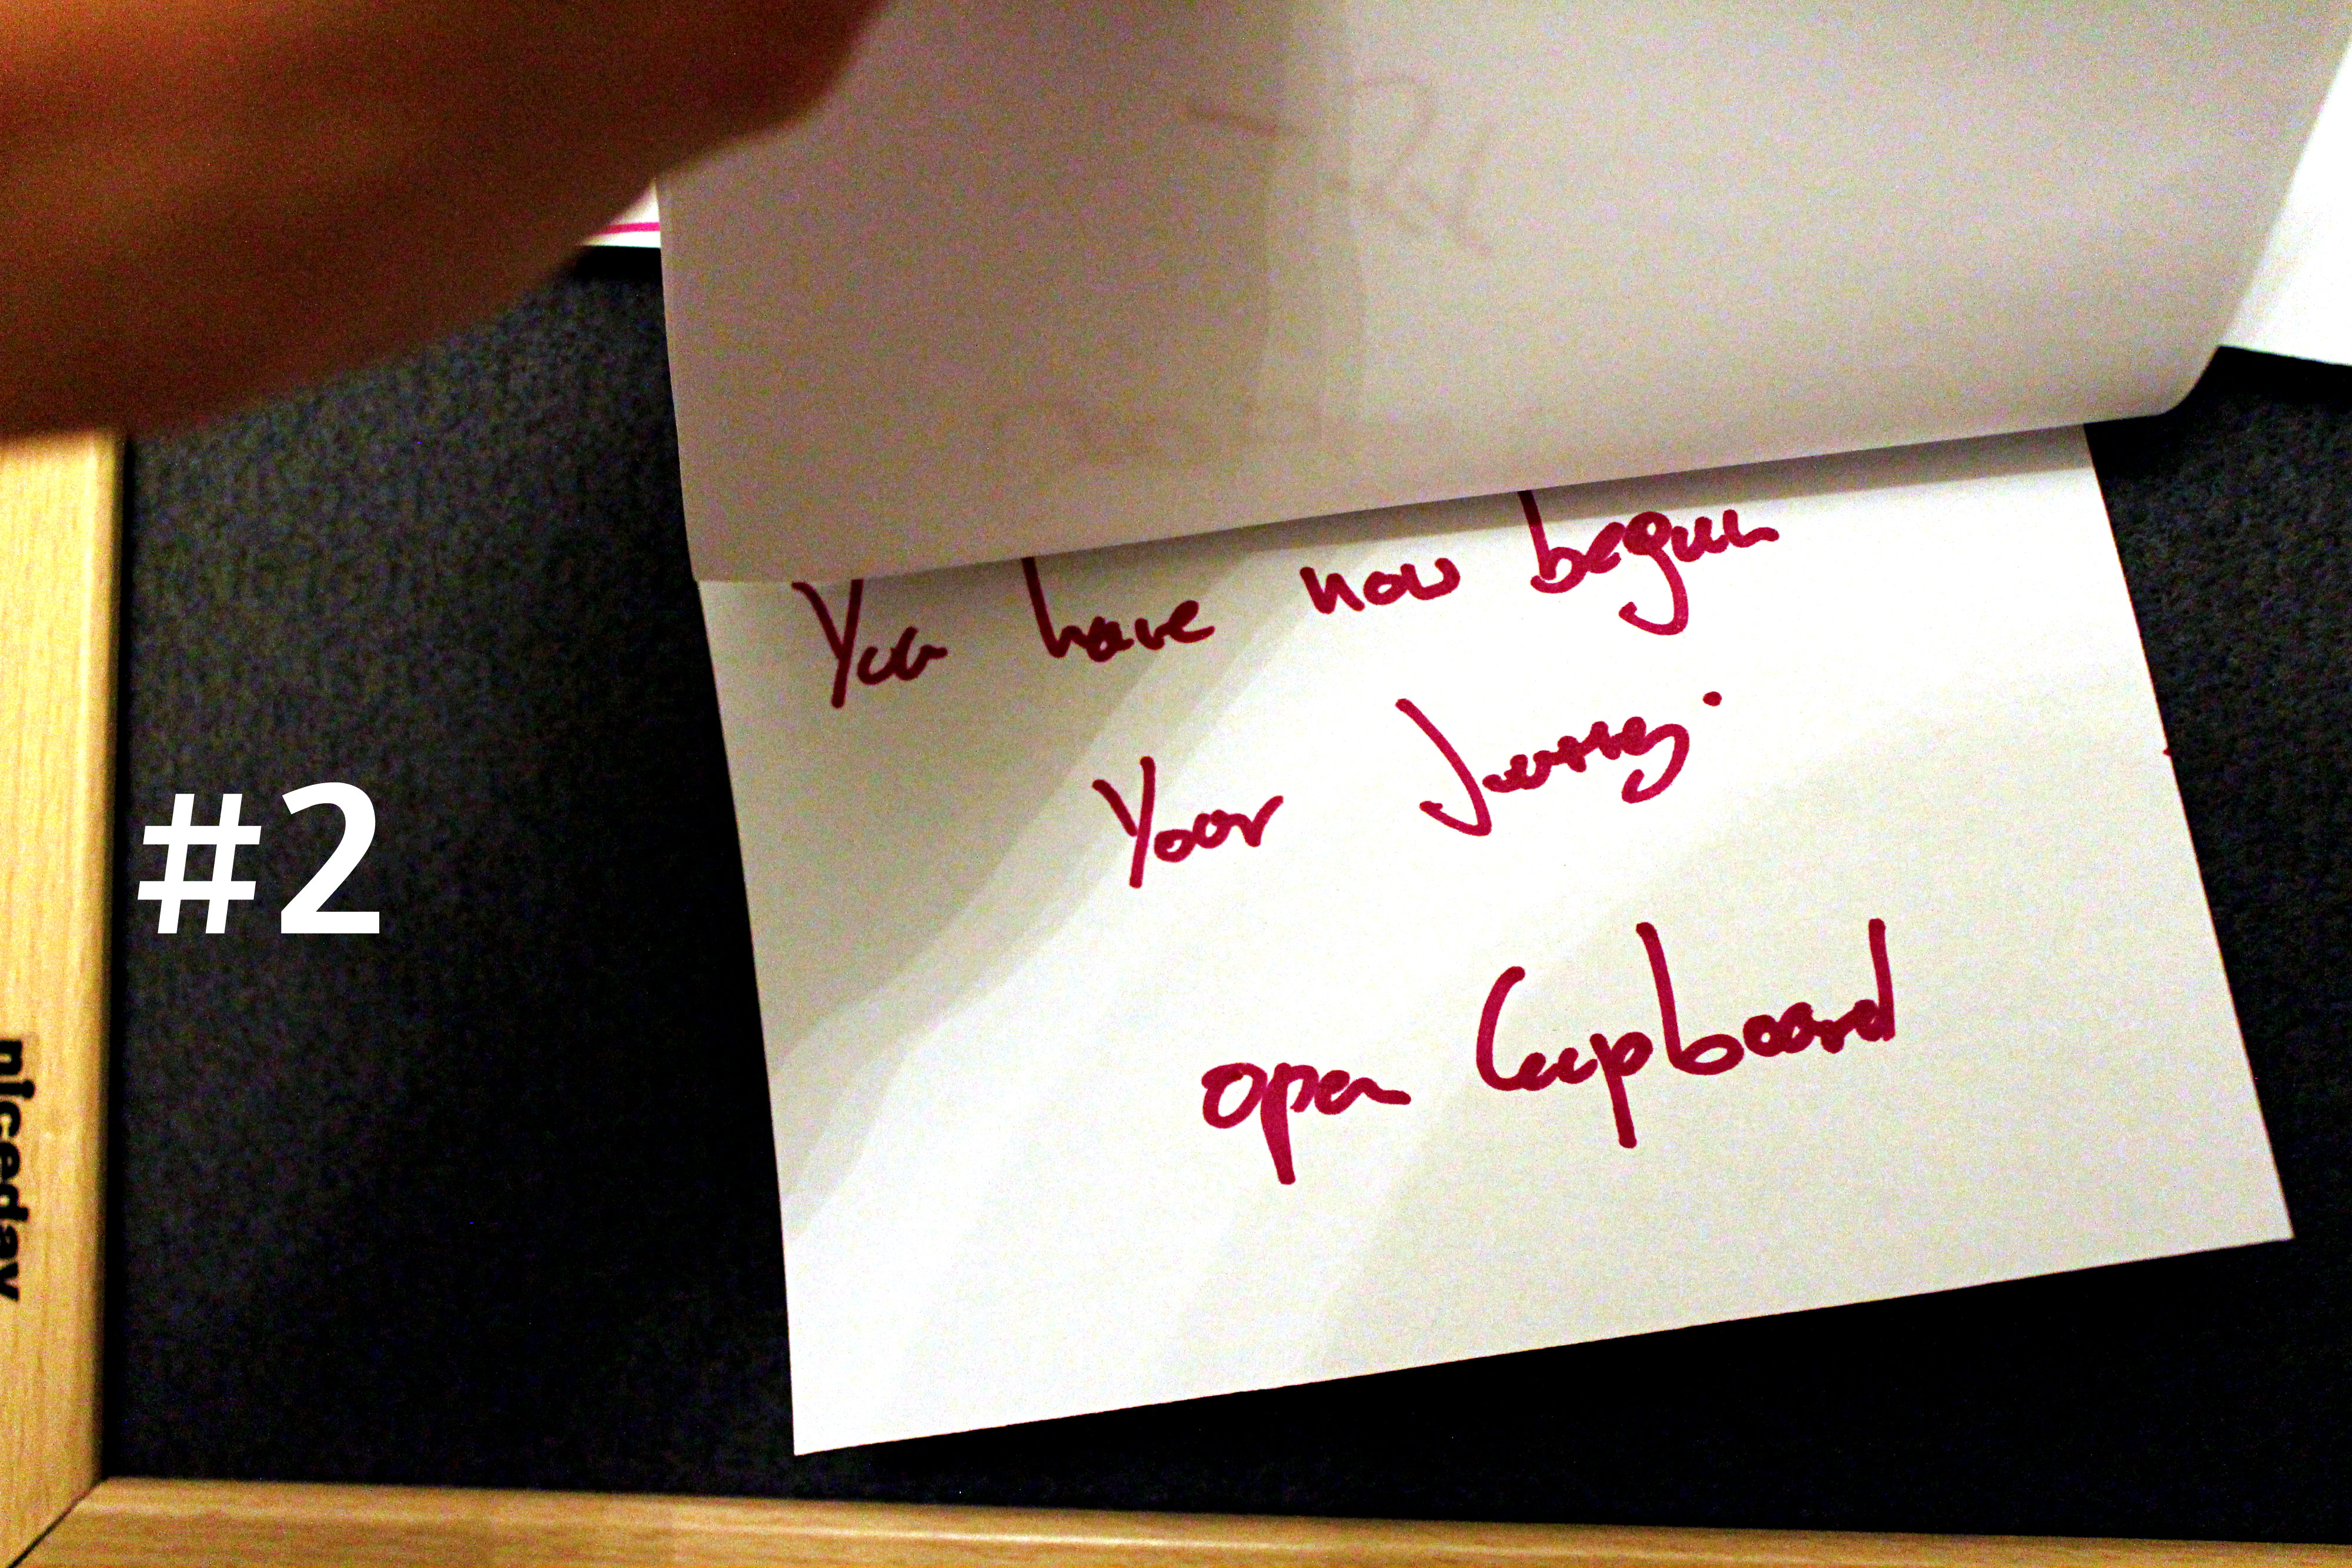 You have now begun
Your Journey.
open Cupboard
#2
niceday